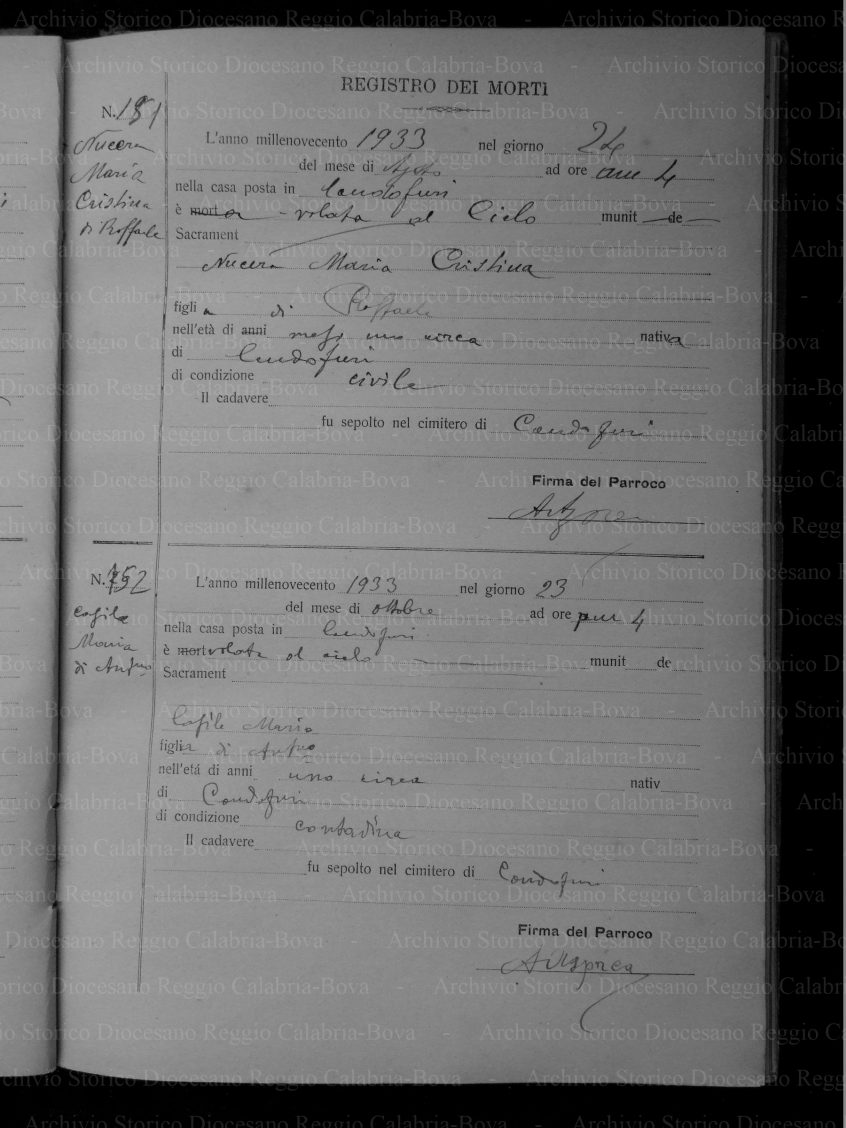 REGISTRO DEI MORTI
N. 151
Nucera
Maria
Cristina
di Raffaele
L'anno millenovecento 1933 nel giorno 24
del mese di Agosto ad ore am 4
nella casa posta in Condofuri
è morta - volata al Cielo munit de
Sacrament
Nucera Maria Cristina
figlia di Raffaele
nell'età di anni mesi uno circa nativa
di Condofuri
di condizione civile
Il cadavere
fu sepolto nel cimitero di Condofuri
Firma del Parroco
N. 152
Cafile
Maria
di
L'anno millenovecento 1933 nel giorno 23
del mese di ottobre ad ore pm 4
nella casa posta in Condofuri
è mort volata al cielo munit de
Sacrament
Cafile Maria
figlia di
nell'etá di anni uno circa nativ
di Condofuri
di condizione contadina
Il cadavere
fu sepolto nel cimitero di Condofuri
Firma del Parroco
Archivio Storico Diocesano Reggio Calabria-Bova